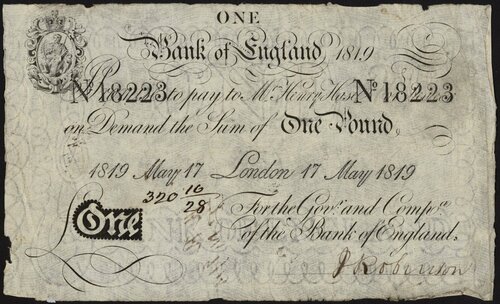 ONE
Bank of England 1819
No 18223 to pay to Mr. Henry Hase No 18223
on Demand the Sum of One Pound
1819 May 17 London 17 May 1819
320 10
28
For the Govr. and Compa.
One
of the Bank of England.
J Robinson